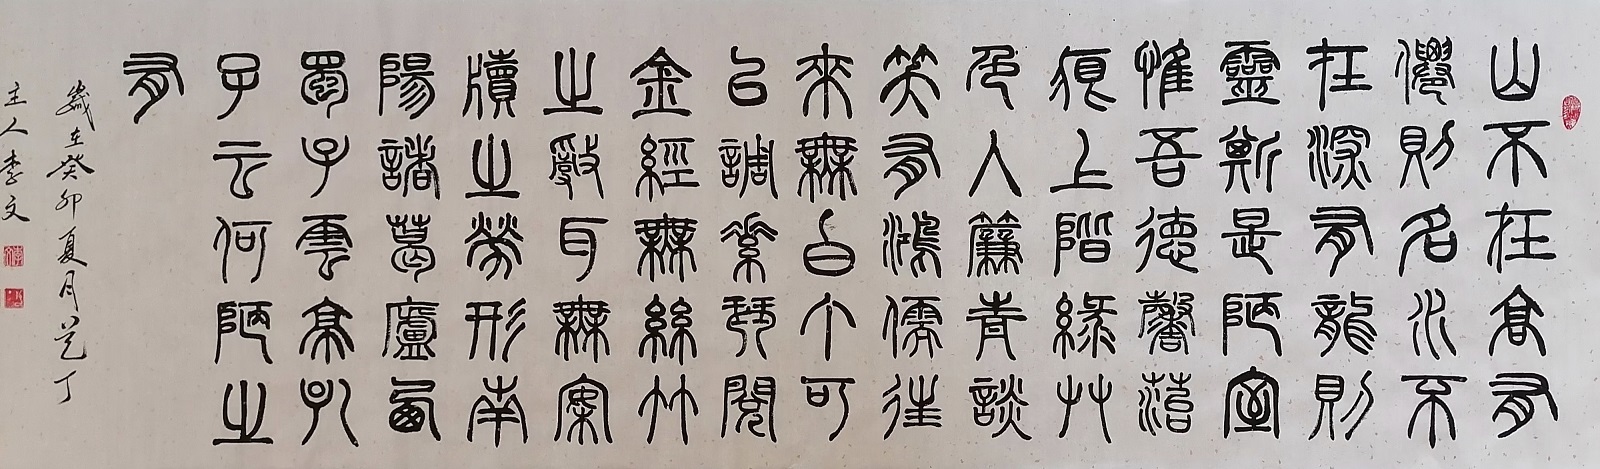 山不在高有
僊則名水不
在深有龍則
靈斯是陋室
惟吾德馨菭
痕上階綠艸
色入簾青談
笑有鴻儒往
來無白丁可
以調素琴閱
金經無絲竹
之亂耳無案
牘之勞形南
陽諸葛廬西
蜀子雲亭孔
子云何陋之
有
歲在癸卯夏月艺丁
主人李文